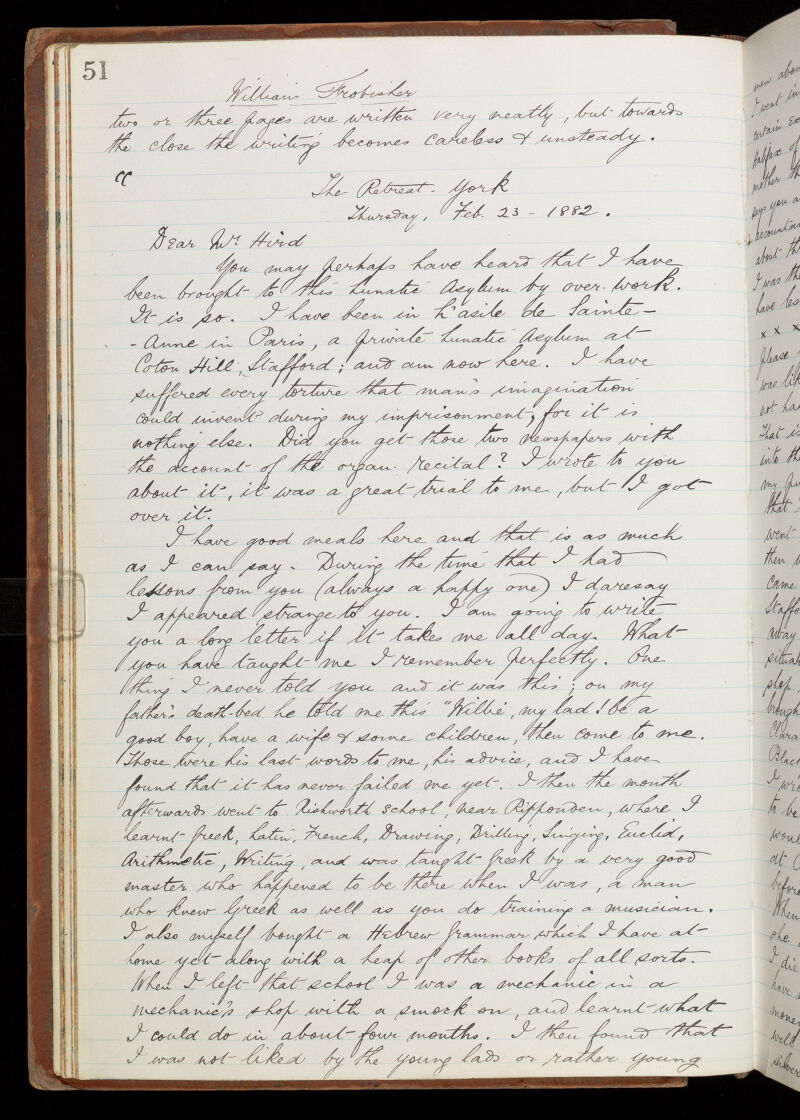 51
William Frobisher
two or three pages are written very neatly, but towards
the close the writing becomes careless & unsteady.
"
The Retreat. York
Thursday, Feb. 23 - 1882.
Dear Mr. Hird
You may perhaps have heard that I have
been brought to this Lunatic Asylum by over-work.
It is so. I have been in L'asile de Sainte-
-Anne in Paris, a private Lunatic Asylum at
Coton Hill, Stafford; and am now here. I have
suffered every torture that man's imagination
could invent during my imprisonment, for it is
nothing else. Did you get those two newspapers with
the account of the organ-recital? I wrote to you
about it, it was a great trial to me, but I got
over it.
I have good meals here and that is as much
as I can say. During the time that I had
lessons from you (always a happy one) I daresay
I appeared strange to you. I am going to write
you a long letter if it takes me all day. What
you have taught me I remember perfectly. One
thing I never told you and it was this; on my
father's death-bed he told me this "Willie, my lad! be a
good boy, have a wife & some children, then come to me.
Those were his last words to me, his advice, and I have
found that it has never failed me yet. I then the month
afterwards went to Rishworth School, near Ripponden, where I
learnt Greek, Latin, French, Drawing, Drilling, Singing, Euclid,
Arithmetic, Writing, and was taught Greek by a very good
master who happened to be there when I was, a man
who knew Greek as well as you do training a musician.
I also myself bought a Hebrew Grammar which I have at
home yet along with a heap of other books of all sorts.
When I left that school I was a mechanic in a
mechanic's shop with a smock on, and learnt what
I could do in about four months. I then found that
I was not liked by the young lads or rather young
men abou
I went in
certain
Halifax of
mother th
says you a
accountan
about th
I was the
have les
x x x
please
was lik
not ha
That is
into th
my
that
went
then
came
Staffo
away
situat
shop
brough
Clara
Black
I wr
to be
woul
at
before
When
she
I die
have
mone
well
silver